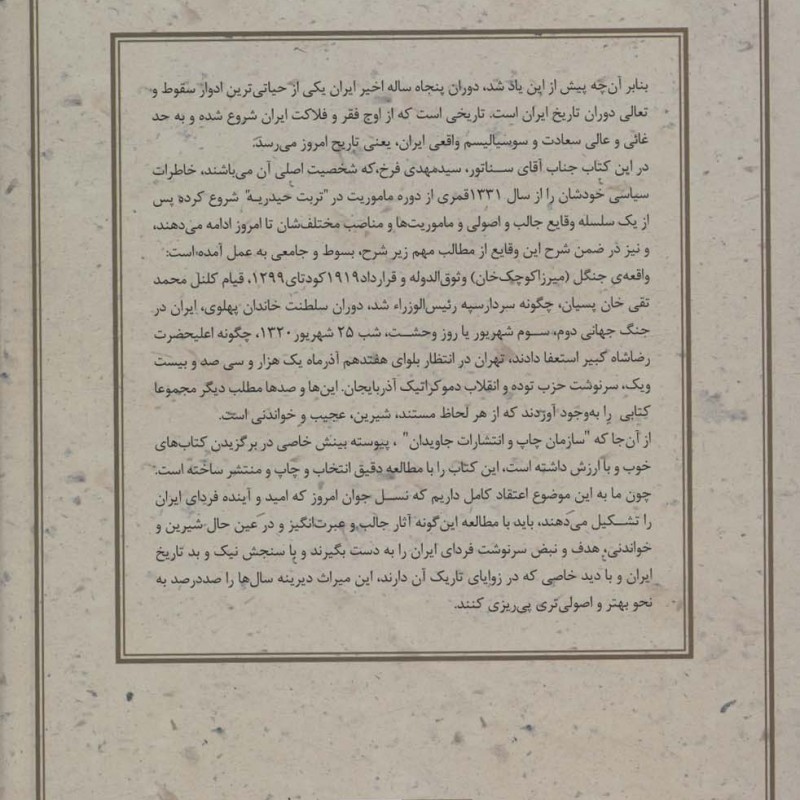 بنابر آن‌چه پیش از این یاد شد، دوران پنجاه ساله اخیر ایران یکی از حیاتی‌ترین ادوار سقوط و
تعالی دوران تاریخ ایران است. تاریخی است که از اوج فقر و فلاکت ایران شروع شده و به حد
غائی و عالی سعادت و سوسیالیسم واقعی ایران، یعنی تاریخ امروز می‌رسد.
در این کتاب جناب آقای سناتور، سیدمهدی فرخ، که شخصیت اصلی آن می‌باشند، خاطرات
سیاسی خودشان را از سال ۱۳۳۱قمری از دوره ماموریت در "تربت حیدریه" شروع کرده پس
از یک سلسله وقایع جالب و اصولی و ماموریت‌ها و مناصب مختلف‌شان تا امروز ادامه می‌دهند،
و نیز در ضمن شرح این وقایع از مطالب مهم زیر شرح، بسوط و جامعی به عمل آمده است:
واقعه‌ی جنگل (میرزاکوچک‌خان) وثوق‌الدوله و قرارداد۱۹۱۹کودتای۱۲۹۹، قیام کلنل محمد
تقی خان پسیان، چگونه سردارسپه رئیس‌الوزراء شد، دوران سلطنت خاندان پهلوی، ایران در
جنگ جهانی دوم، سوم شهریور یا روز وحشت، شب ۲۵ شهریور۱۳۲۰، چگونه اعلیحضرت
رضاشاه کبیر استعفا دادند، تهران در انتظار بلوای هفتدهم آذرماه یک هزار و سی صد و بیست
ویک، سرنوشت حزب توده و انقلاب دموکراتیک آذربایجان. این‌ها و صدها مطلب دیگر مجموعا
کتابی را به‌وجود آوردند که از هر لحاظ مستند، شیرین، عجیب و خواندنی است.
از آن‌جا که "سازمان چاپ و انتشارات جاویدان" ، پیوسته بینش خاصی در برگزیدن کتاب‌های
خوب و باارزش داشته است، این کتاب را با مطالعه دقیق انتخاب و چاپ و منتشر ساخته است.
چون ما به این موضوع اعتقاد کامل داریم که نسل جوان امروز که امید و آینده فردای ایران
را تشکیل می‌دهند، باید با مطالعه این‌گونه آثار جالب و عبرت‌انگیز و در عین حال شیرین و
خواندنی، هدف و نبض سرنوشت فردای ایران را به دست بگیرند و با سنجش نیک و بد تاریخ
ایران و با دید خاصی که در زوایای تاریک آن دارند، این میراث دیرینه سال‌ها را صددرصد به
نحو بهتر و اصولی‌تری پی‌ریزی کنند.